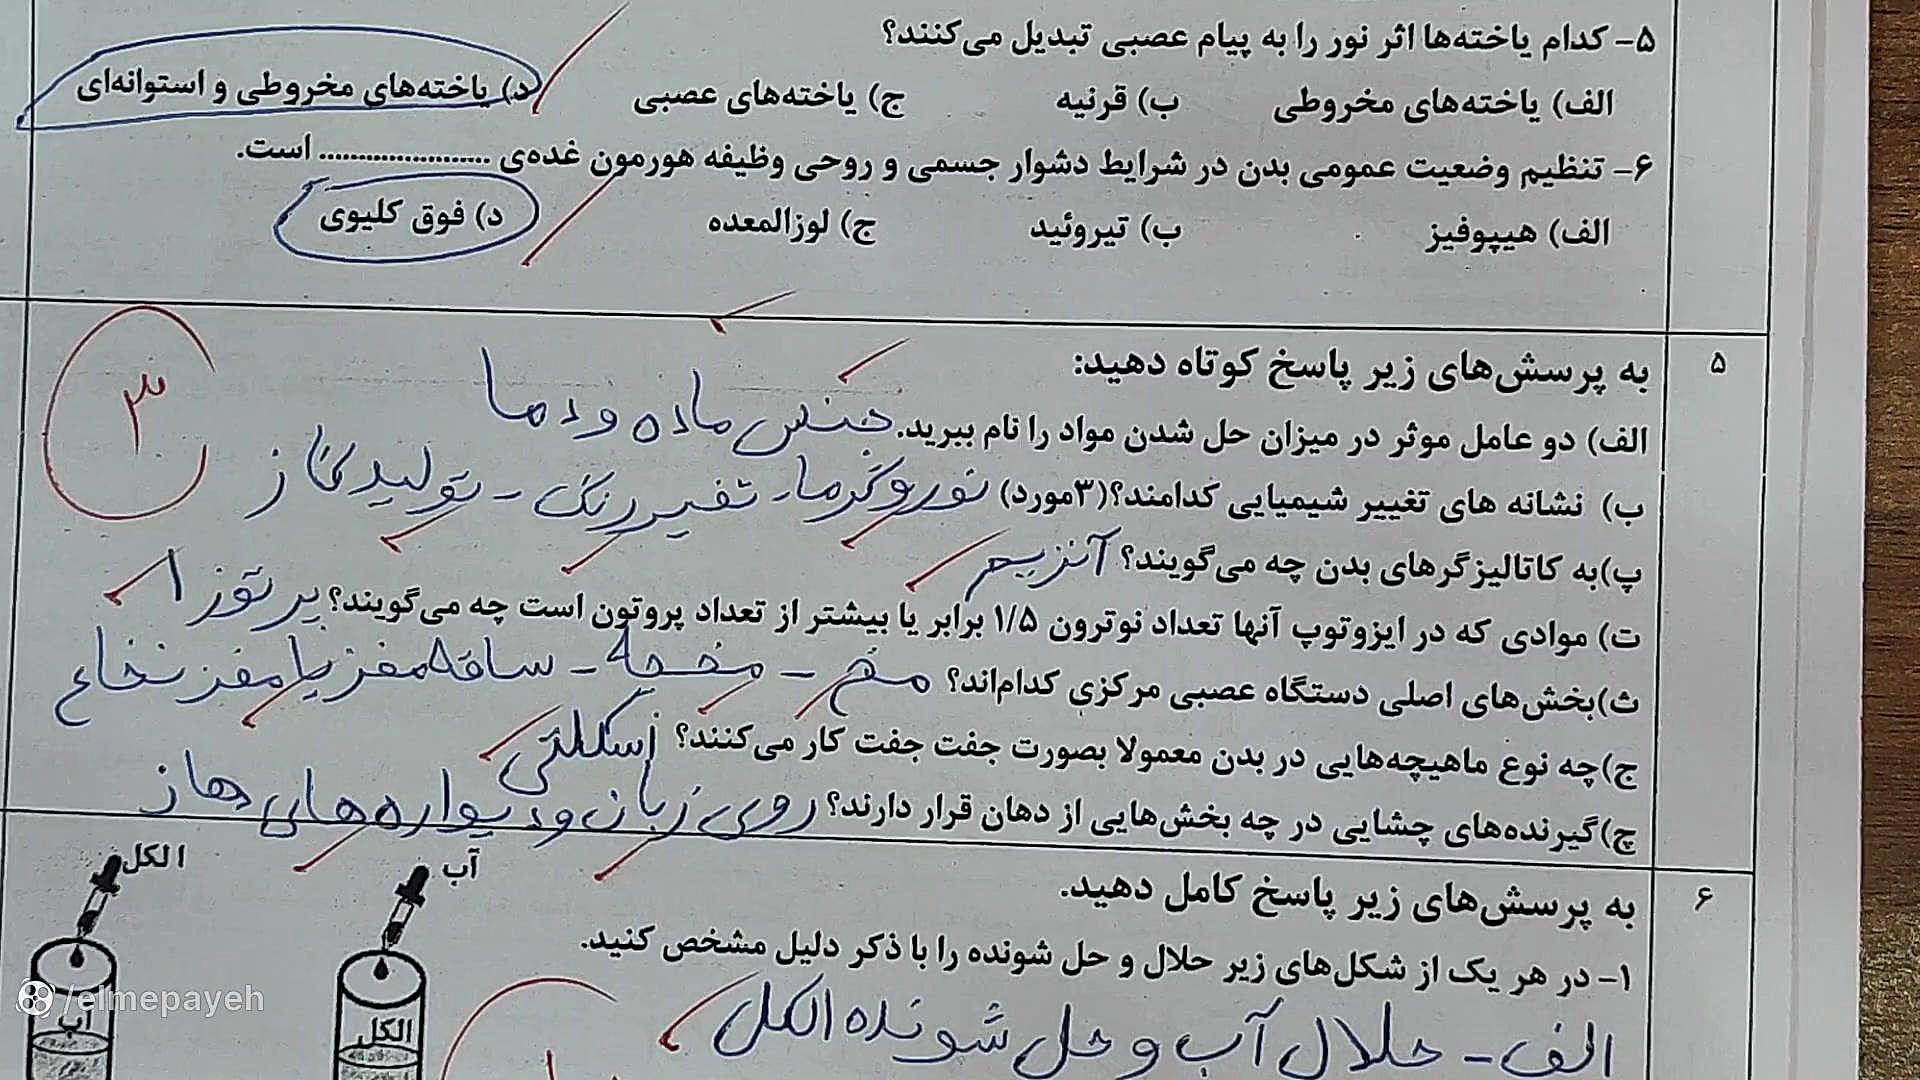 ۵- کدام یاخته‌ها اثر نور را به پیام عصبی تبدیل می‌کنند؟
الف) یاخته‌های مخروطی ب) قرنیه ج) یاخته‌های عصبی د) یاخته‌های مخروطی و استوانه‌ای
۶- تنظیم وضعیت عمومی بدن در شرایط دشوار جسمی و روحی وظیفه هورمون غده‌ی ...................... است.
الف) هیپوفیز ب) تیروئید ج) لوزالمعده د) فوق کلیوی
۵ به پرسش‌های زیر پاسخ کوتاه دهید:
۳
الف) دو عامل موثر در میزان حل شدن مواد را نام ببرید. جنس ماده و دما
ب) نشانه های تغییر شیمیایی کدامند؟(۳مورد) نور و گرما - تغییر رنگ - تولید گاز
پ)به کاتالیزگرهای بدن چه می‌گویند؟ آنزیم
ت) موادی که در ایزوتوپ آنها تعداد نوترون ۱/۵ برابر یا بیشتر از تعداد پروتون است چه می‌گویند؟ پرتوزا
ث)بخش‌های اصلی دستگاه عصبی مرکزی کدام‌اند؟ مخ - مخچه - ساقه مغز یا مغز نخاع
ج)چه نوع ماهیچه‌هایی در بدن معمولا بصورت جفت جفت کار می‌کنند؟ اسکلتی
چ)گیرنده‌های چشایی در چه بخش‌هایی از دهان قرار دارند؟ روی زبان و دیواره‌های دهان
۶ به پرسش‌های زیر پاسخ کامل دهید.
۱- در هر یک از شکل‌های زیر حلال و حل شونده را با ذکر دلیل مشخص کنید.
آب
الکل
الکل
آب
الف - حلال آب و حل شونده الکل
/elmepayeh